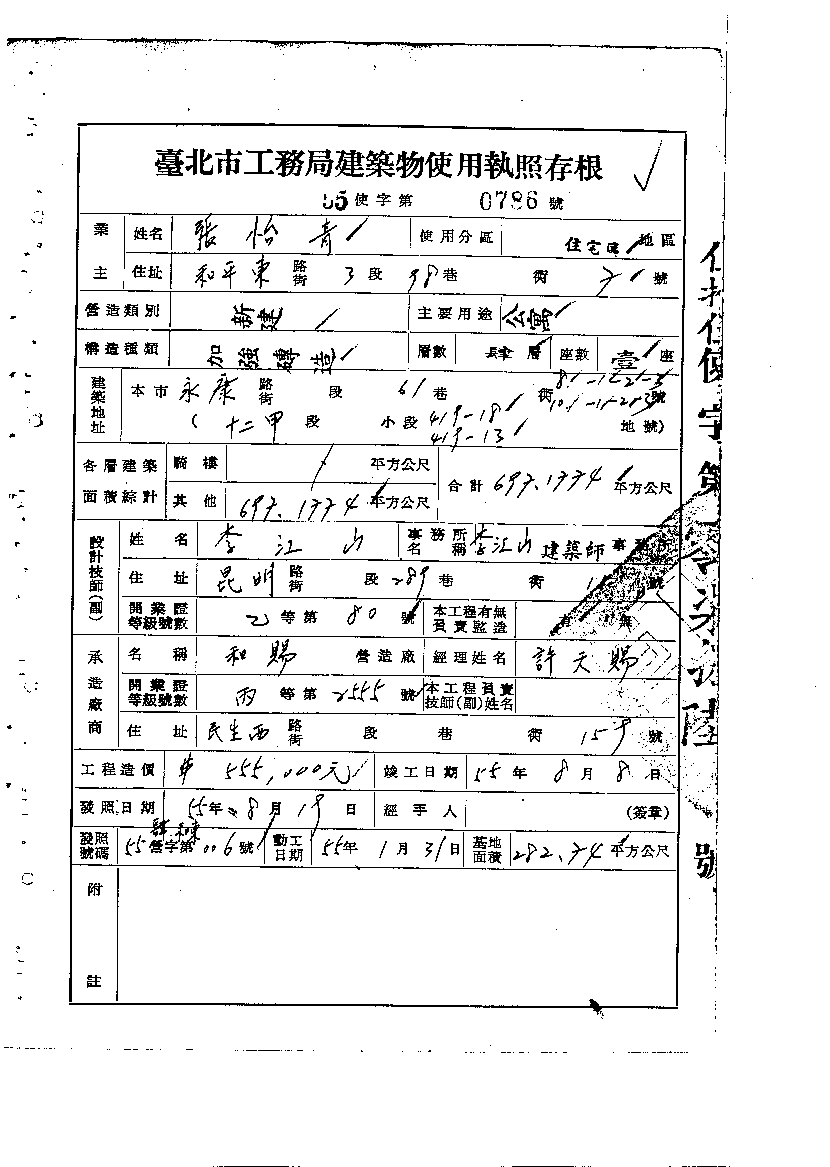 臺北市工務局建築物使用執照存根
55使字第 0786 號
業主 姓名 張怡青 使用分區 住宅區 地區
住址 和平東 路街 3 段 98 巷 街 號
營造類別 新建 主要用途 公寓
構造種類 加強磚造 層數 肆 層 座數 壹 座
建築地址 本市 永康 路街 段 61 巷 街 8/-1-2-3 10/-1-2-3 號
(十二甲 段 小段 419-18 419-13 地號)
各層建築面積綜計 騎樓 / 平方公尺 合計 697.1774 平方公尺
其他 697.1774 平方公尺
設計技師(副) 姓名 李江山 事務所名稱 李江山 建築師 事
住址 昆明 路街 段 289 巷 街 號
開業證等級號數 乙 等第 80 號 本工程有無負責監造 有 無
承造廠商 名稱 和賜 營造廠 經理姓名 許天賜
開業證等級號數 丙 等第 2555 號 本工程負責技師(副)姓名
住址 民生西 路街 段 巷 街 159 號
工程造價 555,000元 竣工日期 55年8月8日
發照日期 55年8月19日 經手人 (簽章)
發照號碼 55 營字第 006 號 動工日期 55年1月31日 基地面積 282.74 平方公尺
附註
使字第
號